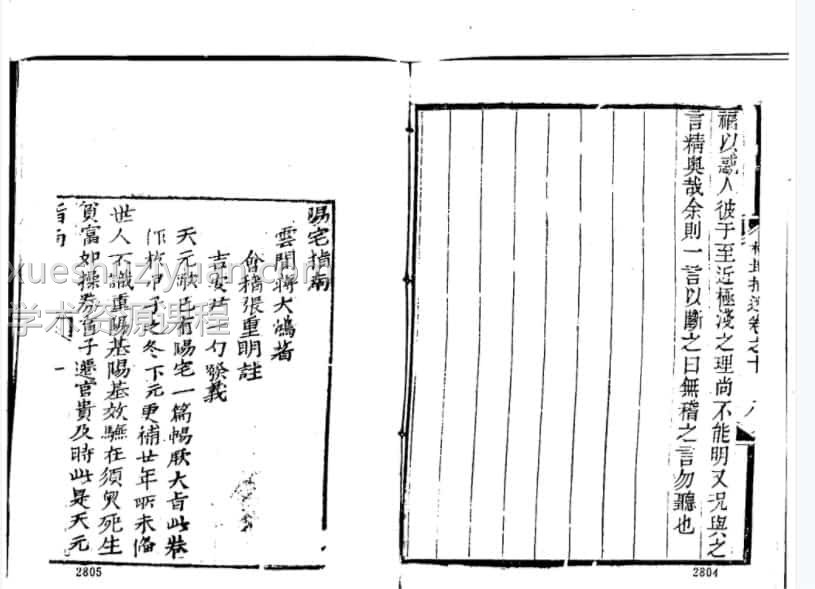 禍以惑人彼于至近極淺之理尚不能明又況與之
言精奧哉余則一言以斷之曰無稽之言勿聽也
卷之十
2804
陽宅指南
雲間蔣大鴻著
會稽張重明註
吉安 一勺發義
天元歌已有陽宅一篇暢厥大旨此卷
作於甲子之冬下元更補廿年所未備
世人不識重陽基陽基效驗在須臾死生
貧富如操券 子遷官貴及時此是天元
指南
一
2805
xueshuziyuan.com
学术资源课程